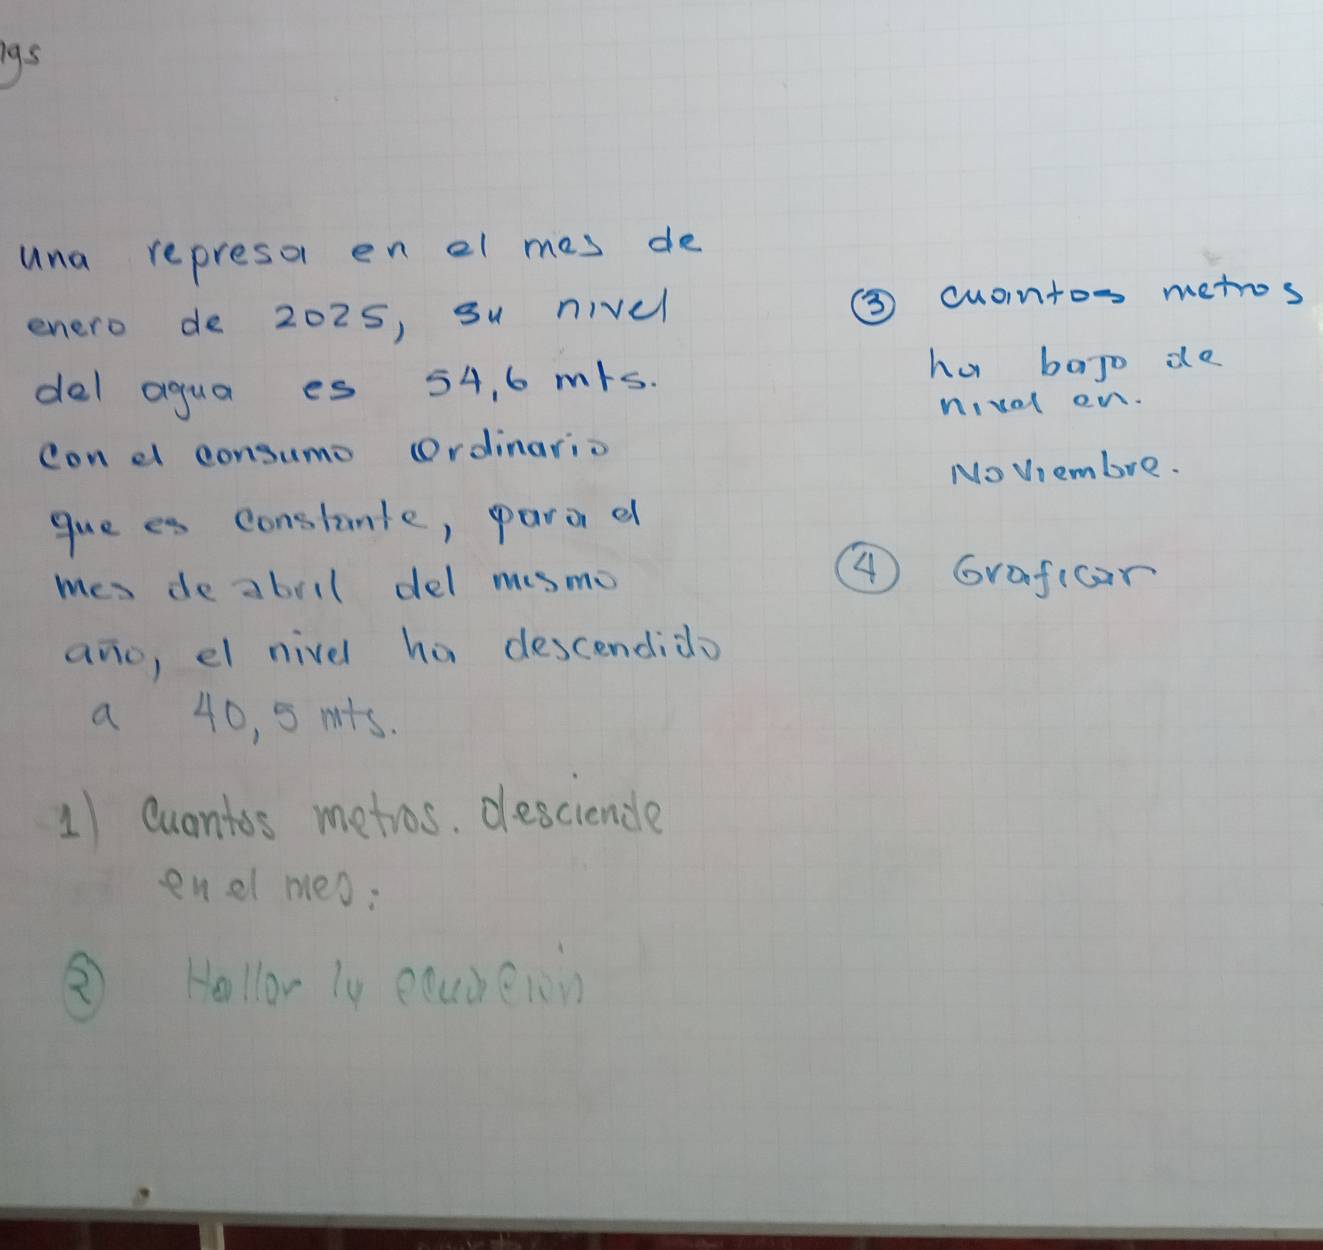 ngs
una represa en el mes de
enero de 2025, su nivel
del agua es 54,6 mts.
con el consumo ordinario
que es constante, para el
mes de abril del mismo
año, el nivel ha descendido
a 40,5 mts.
1) Cuantos metros. desciende
en el mes:
② Hallar la ecuación
③ cuantos metros
ha bajo de
nivel en.
Noviembre.
④ Graficar